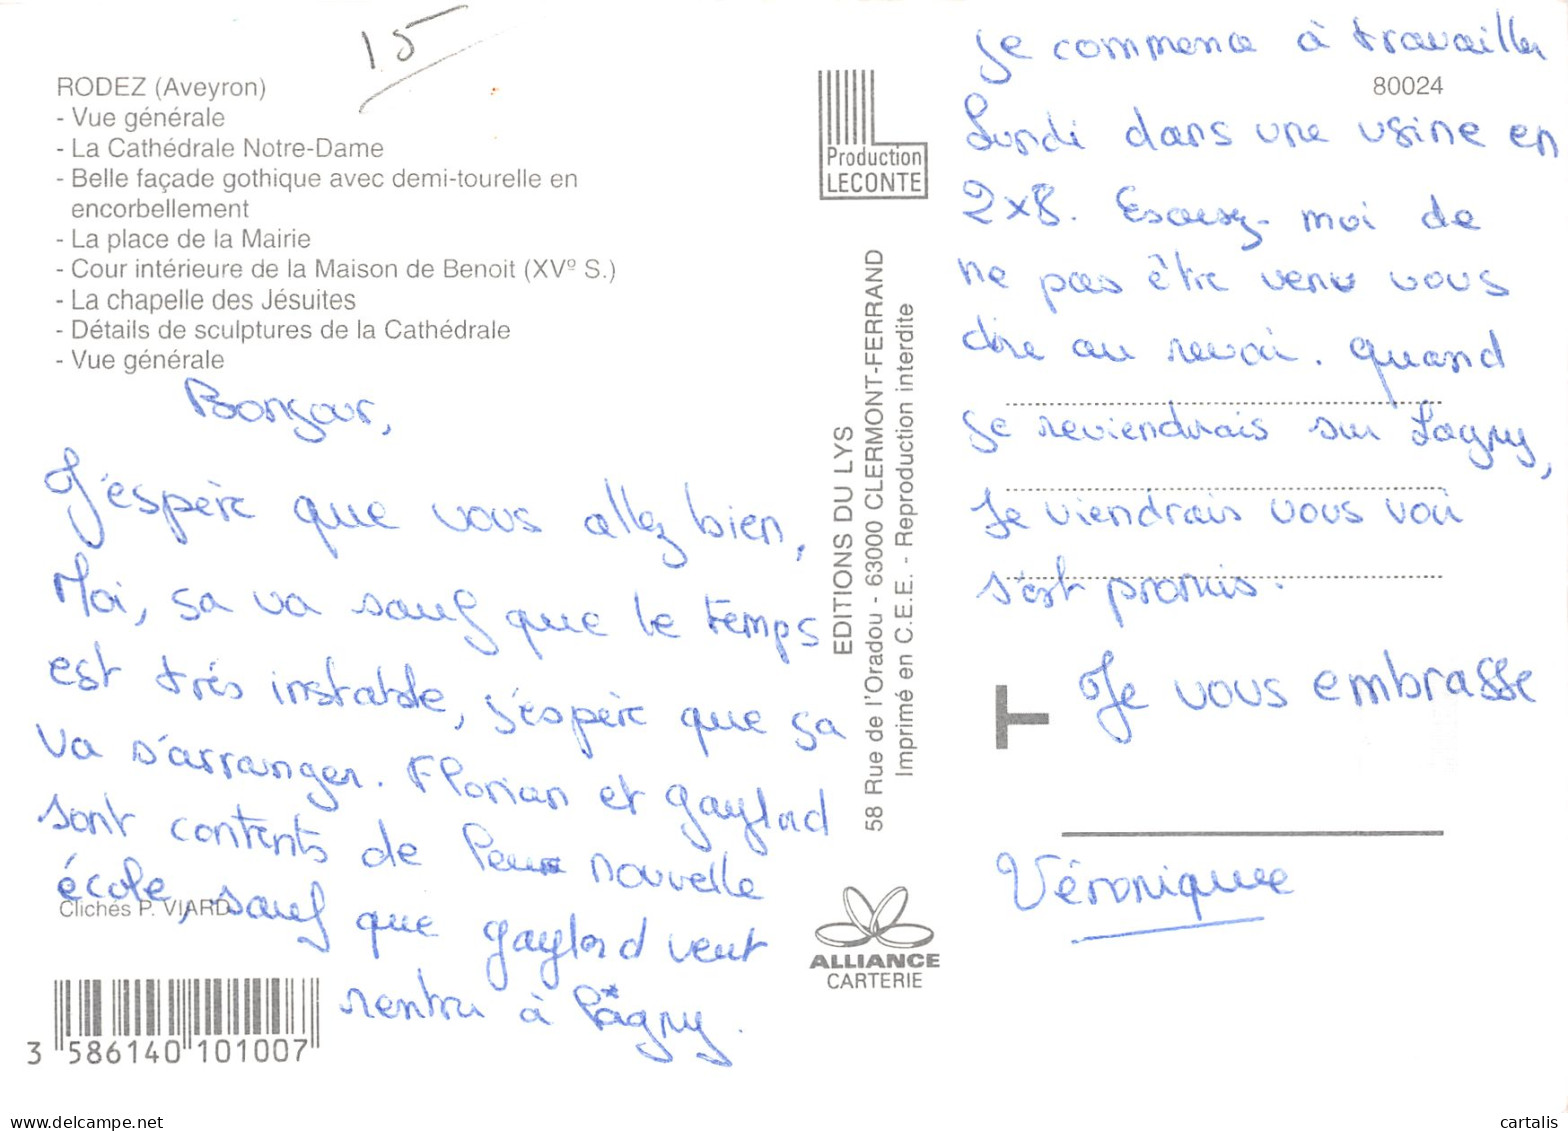 15
RODEZ (Aveyron)
- Vue générale
- La Cathédrale Notre-Dame
- Belle façade gothique avec demi-tourelle en
encorbellement
- La place de la Mairie
- Cour intérieure de la Maison de Benoit (XVº S.)
- La chapelle des Jésuites
- Détails de sculptures de la Cathédrale
- Vue générale
Bonjour,
J'éspère que vous allez bien,
Moi, sa va sauf que le temps
est trés instable, j'éspère que sa
va s'arranger. Florian et gaylord
sont contents de leur nouvelle
école, sauf que gaylord veut
rentrer à Lagny.
Clichés P. VIARD
3 586140 101007
Production
LECONTE
EDITIONS DU LYS
58 Rue de l'Oradou - 63000 CLERMONT-FERRAND
Imprimé en C.E.E. - Reproduction interdite
ALLIANCE
CARTERIE
80024
je commence à travailler
Lundi dans une usine en
2x8. Escusez-moi de
ne pas être venu vous
dire au revoir. quand
je reviendrais sur Lagny,
Je viendrais vous voir
s'est promis.
Je vous embrasse
Véronique
cartalis